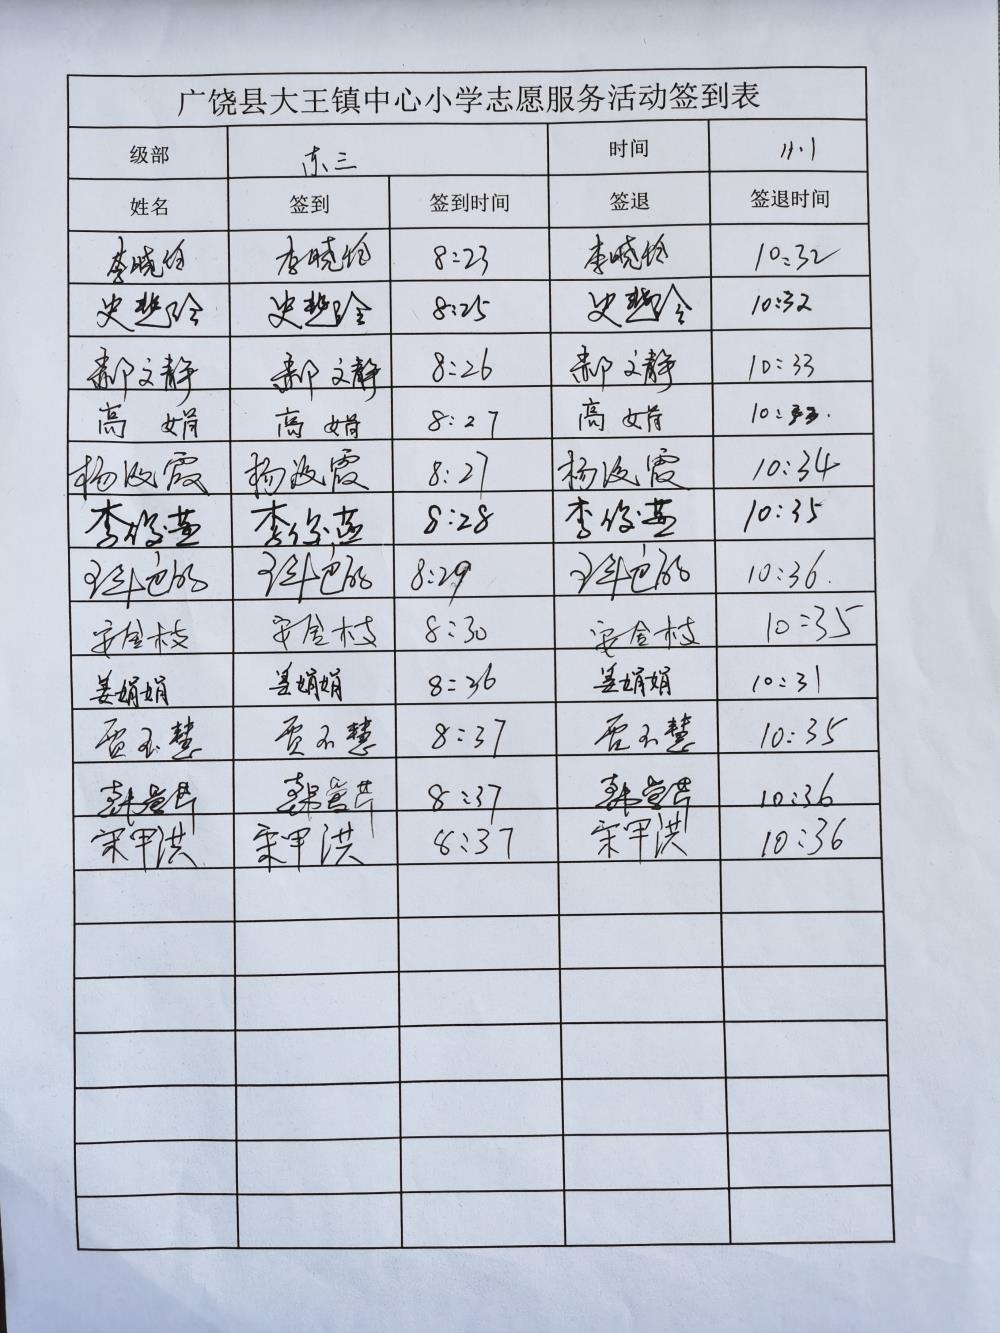 广饶县大王镇中心小学志愿服务活动签到表
级部 东三 时间 11.1
姓名 签到 签到时间 签退 签退时间
李晓 李晓 8:23 李晓 10:32
史 史 8:25 史 10:32
郝文静 郝文静 8:26 郝文静 10:33
高娟 高娟 8:27 高娟 10:33.
杨海霞 杨海霞 8:27 杨海霞 10:34
李俊燕 李俊燕 8:28 李俊燕 10:35
8:29 10:36.
安金枝 安金枝 8:30 安金枝 10:35
姜娟娟 姜娟娟 8:36 姜娟娟 10:31
贾玉慧 贾玉慧 8:37 贾玉慧 10:35
8:37 10:36
宋甲洪 宋甲洪 8:37 宋甲洪 10:36